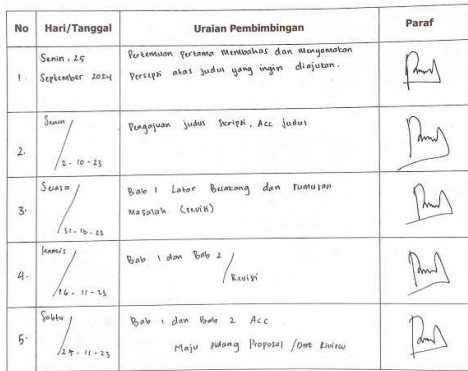 No Hari/Tanggal Uraian Pembimbingan Paraf
1. Senin, 25 Pertemuan Pertama Membahas dan Menyamakan
September 2024 Persepsi atas judul yang ingin diajukan.
2. Senin / 2-10-23 Pengajuan judul Skripsi, Acc judul
3. Selasa / 31-10-23 Bab 1 Latar Belakang dan rumusan
Masalah (revisi)
4. Kamis / 16-11-23 Bab 1 dan Bab 2 / Revisi
5. Sabtu / 25-11-23 Bab 1 dan Bab 2 Acc
Maju sidang Proposal /